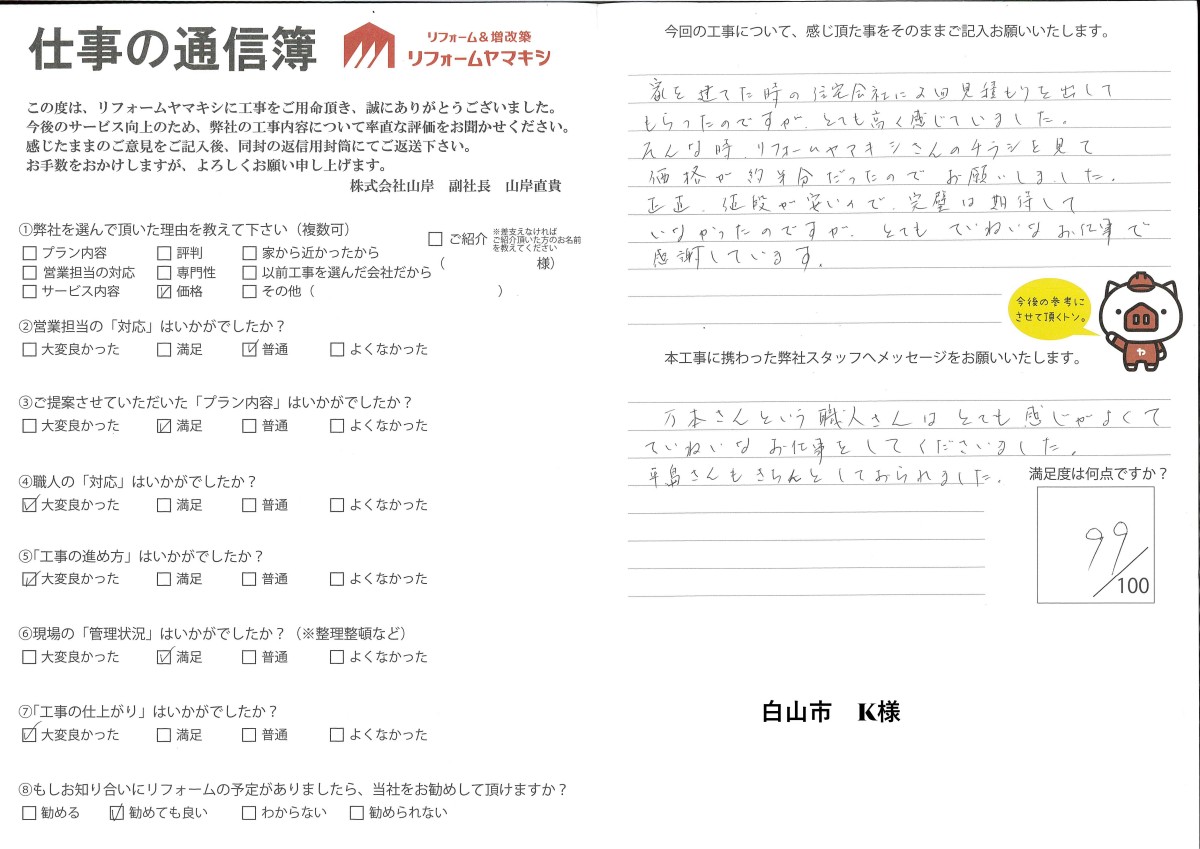 仕事の通信簿
リフォーム&増改築
リフォームヤマキシ
この度は、リフォームヤマキシに工事をご用命頂き、誠にありがとうございました。
今後のサービス向上のため、弊社の工事内容について率直な評価をお聞かせください。
感じたままのご意見をご記入後、同封の返信用封筒にてご返送下さい。
お手数をおかけしますが、よろしくお願い申し上げます。
株式会社山岸 副社長 山岸直貴
①弊社を選んで頂いた理由を教えて下さい（複数可）
□プラン内容 □評判 □家から近かったから
□営業担当の対応 □専門性 □以前工事を選んだ会社だから
□サービス内容 ☑価格 □その他（ ）
□ご紹介 ※差支えなければ
ご紹介頂いた方のお名前
を教えてください
（ 様）
②営業担当の「対応」はいかがでしたか？
□大変良かった □満足 ☑普通 □よくなかった
③ご提案させていただいた「プラン内容」はいかがでしたか？
□大変良かった ☑満足 □普通 □よくなかった
④職人の「対応」はいかがでしたか？
☑大変良かった □満足 □普通 □よくなかった
⑤「工事の進め方」はいかがでしたか？
☑大変良かった □満足 □普通 □よくなかった
⑥現場の「管理状況」はいかがでしたか？（※整理整頓など）
□大変良かった ☑満足 □普通 □よくなかった
⑦「工事の仕上がり」はいかがでしたか？
☑大変良かった □満足 □普通 □よくなかった
⑧もしお知り合いにリフォームの予定がありましたら、当社をお勧めして頂けますか？
□勧める ☑勧めても良い □わからない □勧められない
今回の工事について、感じ頂た事をそのままご記入お願いいたします。
家を建てた時の住宅会社に2回見積もりを出して
もらったのですが、とても高く感じていました。
そんな時、リフォームヤマキシさんのチラシを見て
価格が約半分だったのでお願いしました。
正直、値段が安いので、完璧は期待して
いなかったのですが、とてもていねいなお仕事で
感謝しています。
今後の参考に
させて頂くトン。
ヤ
本工事に携わった弊社スタッフへメッセージをお願いいたします。
万本さんという職人さんはとても感じがよくて
ていねいなお仕事をしてくださいました。
平島さんもきちんとしておられました。
満足度は何点ですか？
99/100
白山市 K様